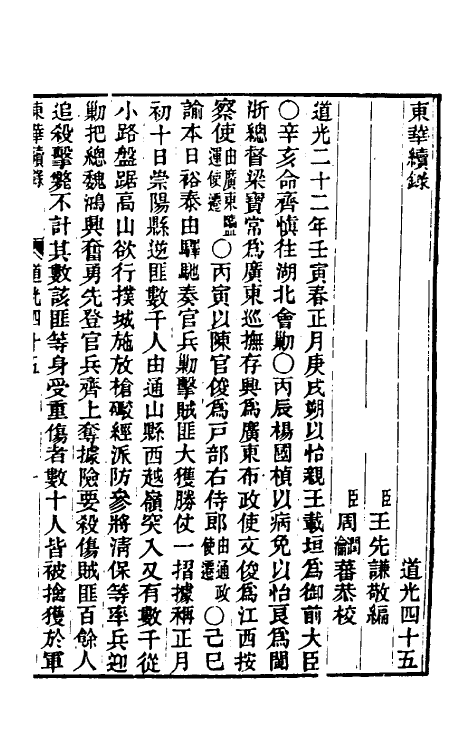 東華續錄
道光四十五
臣王先謙敬編
臣周潤蕃瀹蕃恭校
道光二十二年壬寅春正月庚戌朔以怡親王載垣為御前大臣
○辛亥命齊慎往湖北會勦○丙辰楊國楨以病免以怡良為閩
浙總督梁寶常為廣東巡撫存興為廣東布政使文俊為江西按
察使由廣東鹽運使遷○丙寅以陳官俊為戶部右侍郎由通政使遷○己巳
諭本日裕泰由驛馳奏官兵勦擊賊匪大獲勝仗一摺據稱正月
初十日崇陽縣逆匪數千人由通山縣西越嶺突入又有數千從
小路盤踞高山欲行撲城施放槍礮經派防參將清保等率兵迎
勦把總魏鴻興奮勇先登官兵齊上奪據險要殺傷賊匪百餘人
追殺擊斃不計其數該匪等身受重傷者數十人皆被擒獲於軍
東華續錄
道光四十五
一